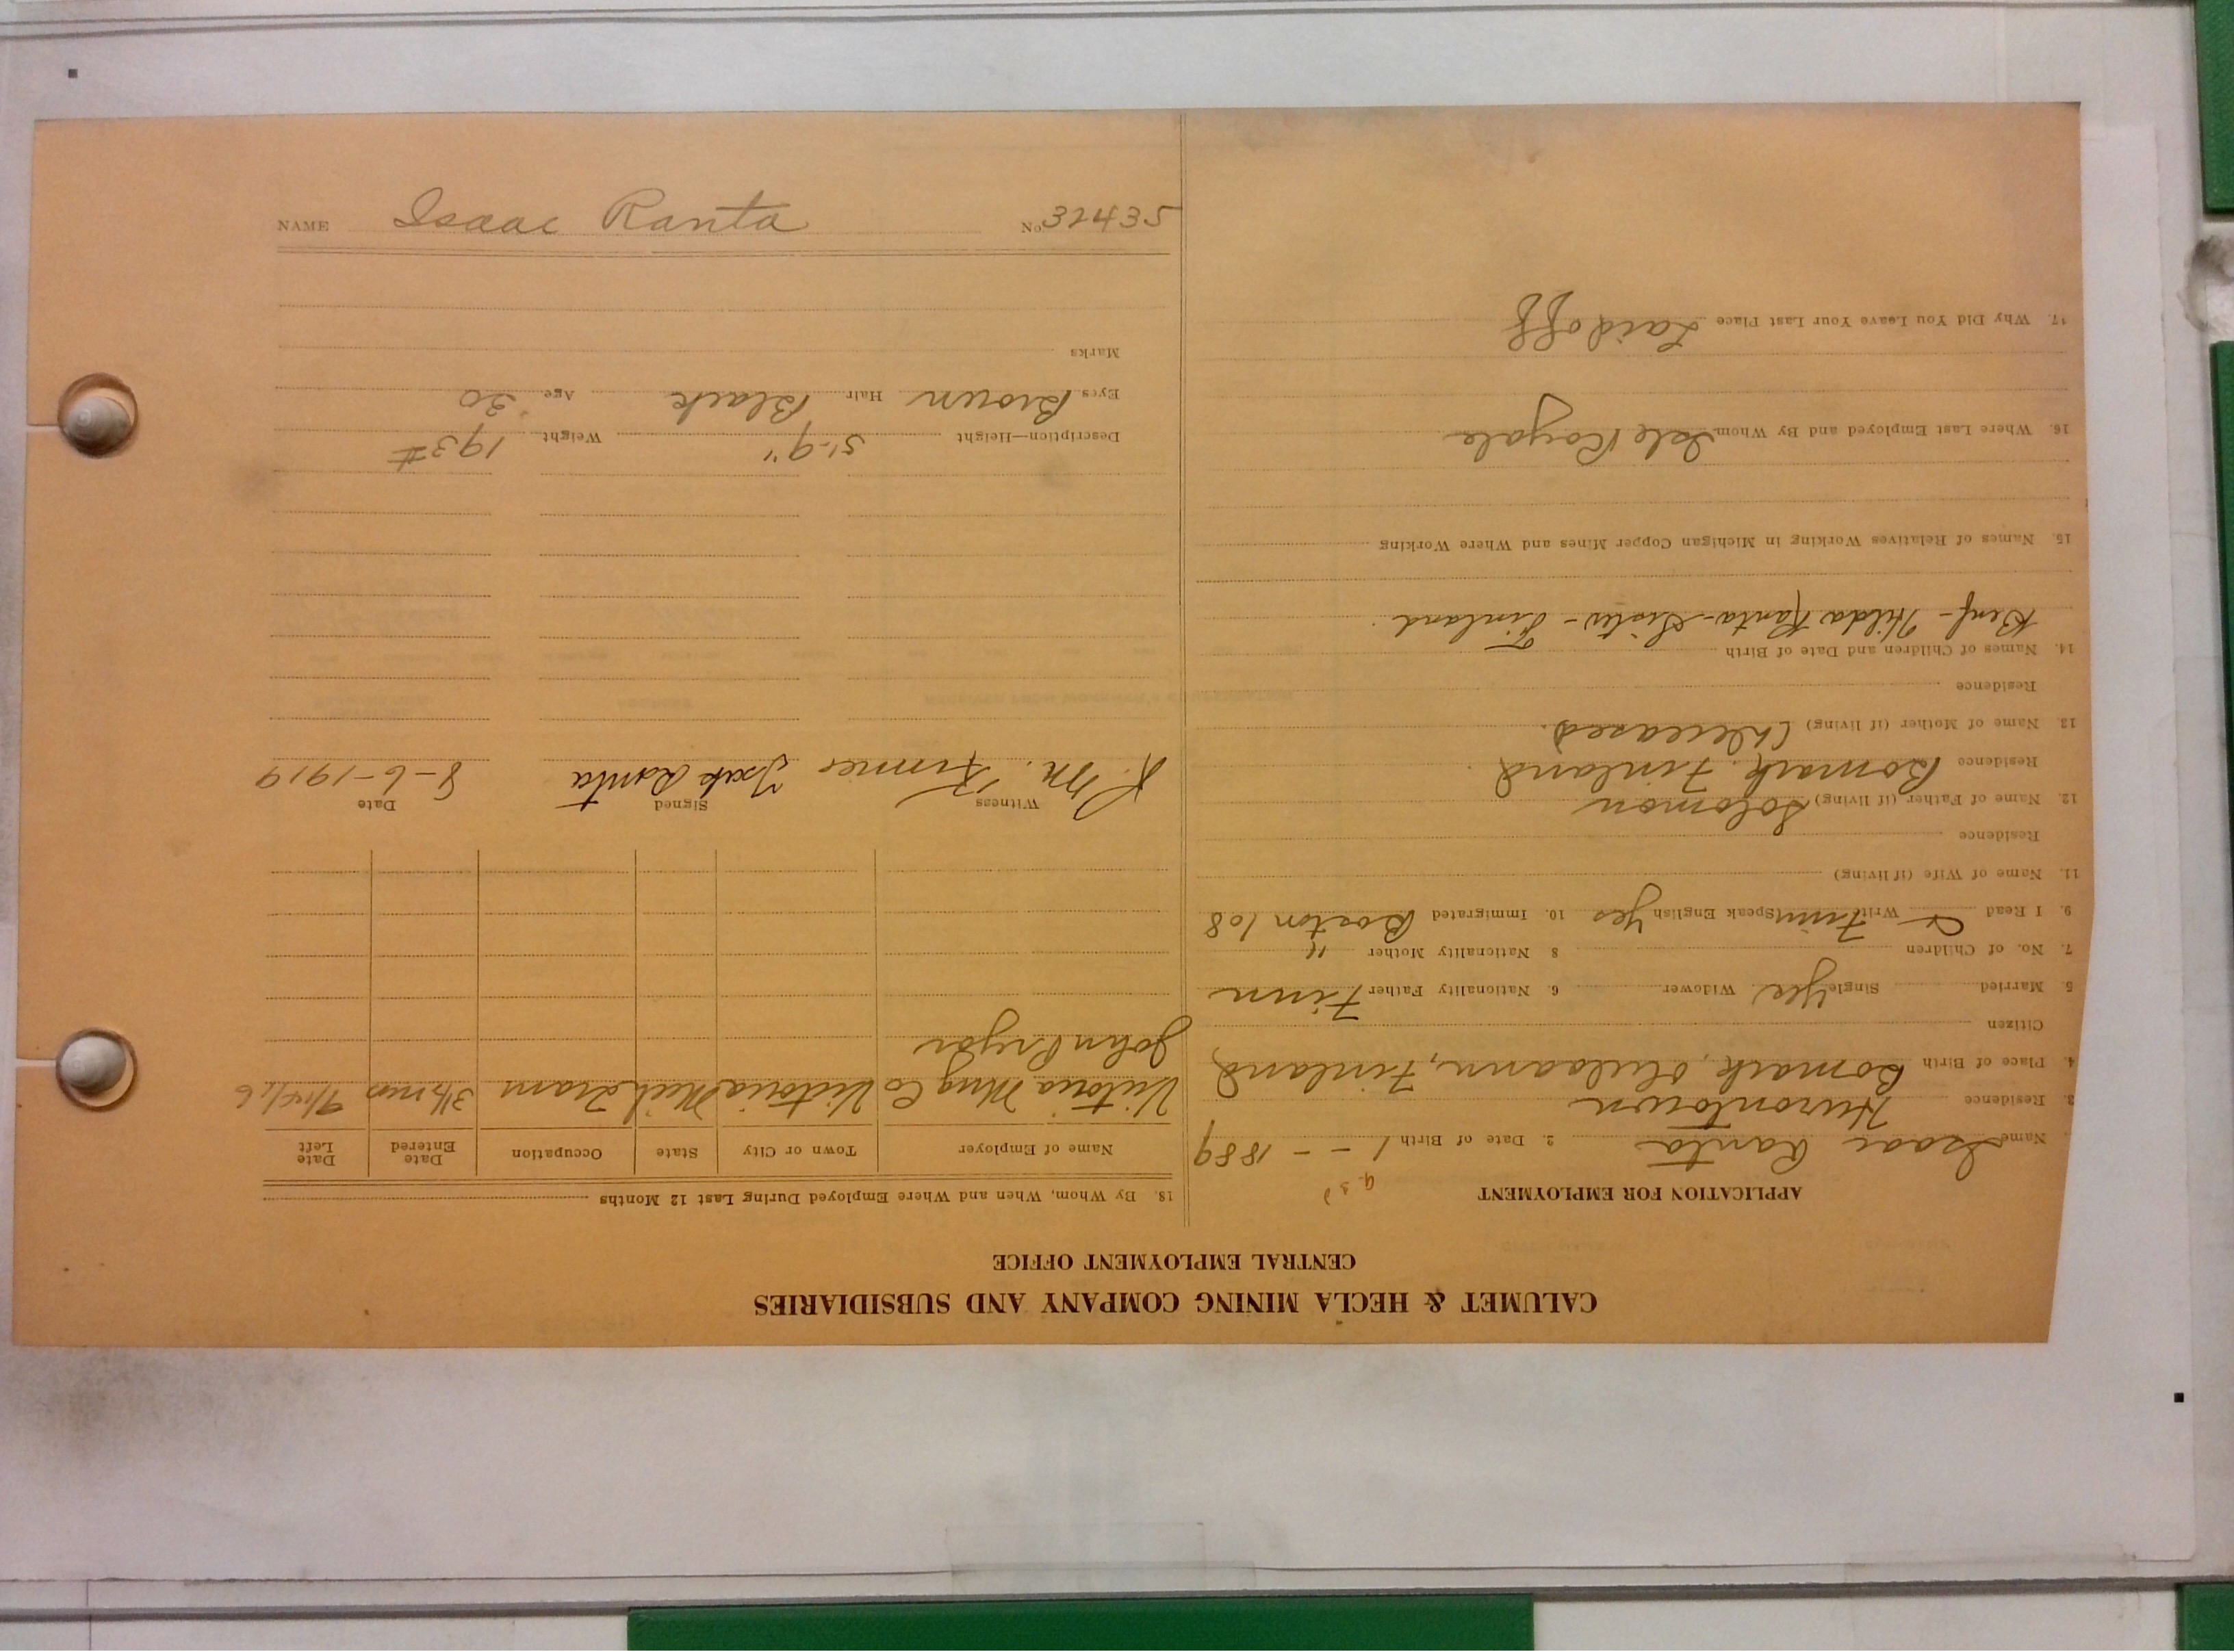 NAME Isaac Ranta No 32435
CALUMET & HECLA MINING COMPANY AND SUBSIDIARIES
CENTRAL EMPLOYMENT OFFICE
APPLICATION FOR EMPLOYMENT
Name Isaac Ranta 2. Date of Birth 1 - - 1889
3. Residence Hurontown
4. Place of Birth Finland
Citizen
5. Married Single Yes Widower 6. Nationality Father Finn
7. No. of Children 8 Nationality Mother "
9. I Read & Write Finn Speak English Yes 10. Immigrated Boston 108
11. Name of Wife (if living)
Residence
12. Name of Father (if living) Solomon
Residence Finland
13. Name of Mother (if living) (Deceased)
Residence
14. Names of Children and Date of Birth
Benf - Hilda Ranta - Sister - Finland
15. Names of Relatives Working in Michigan Copper Mines and Where Working
16. Where Last Employed and By Whom Isle Royale
17. Why Did You Leave Your Last Place Laid off
18. By Whom, When and Where Employed During Last 12 Months
Name of Employer Town or City State Occupation Date Entered Date Left
Victoria Mng Co Victoria Mich Tram 3½ mos
John Pryor
Witness Signed Date
Isak Ranta 8-6-1919
Description—Height 5'-9" Weight 193#
Eyes Brown Hair Black Age 30
Marks